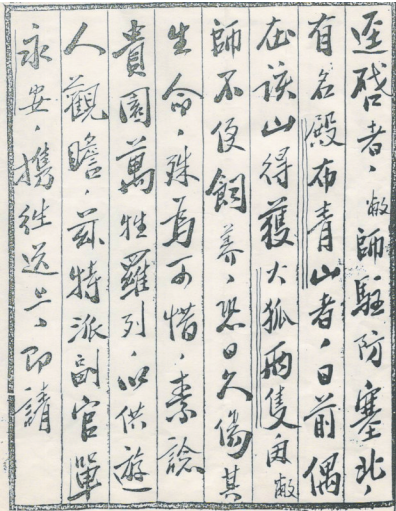 逕啓者，敝師駐防塞北，
有名殿布青山者，日前偶
在該山得獲狐兩隻因敝
師不便飼養，恐日久傷其
生命，殊爲可惜，素諗
貴園萬牲羅列，以供遊
人觀瞻，茲特派副官單
永安，携往送上，即請